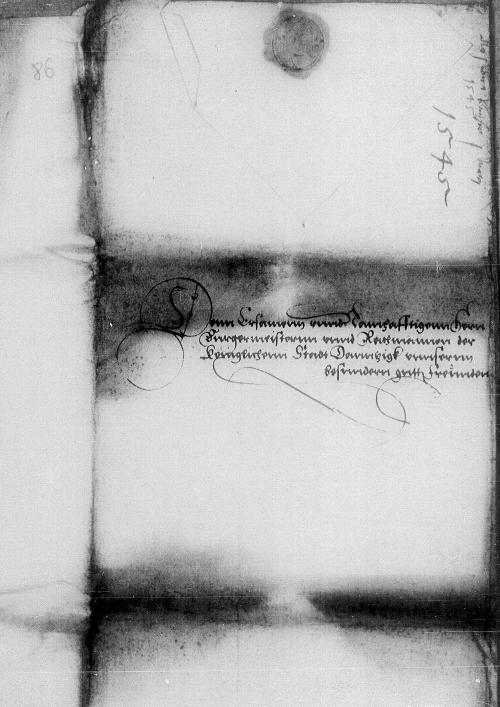 86
1545
Denn Ersamenn unnd Namhafftigenn Hern
Burgermeisternn unnd Rathmannen der
Koniglichenn Stadt Danntzigk unnsernn
besondern guttn freunden